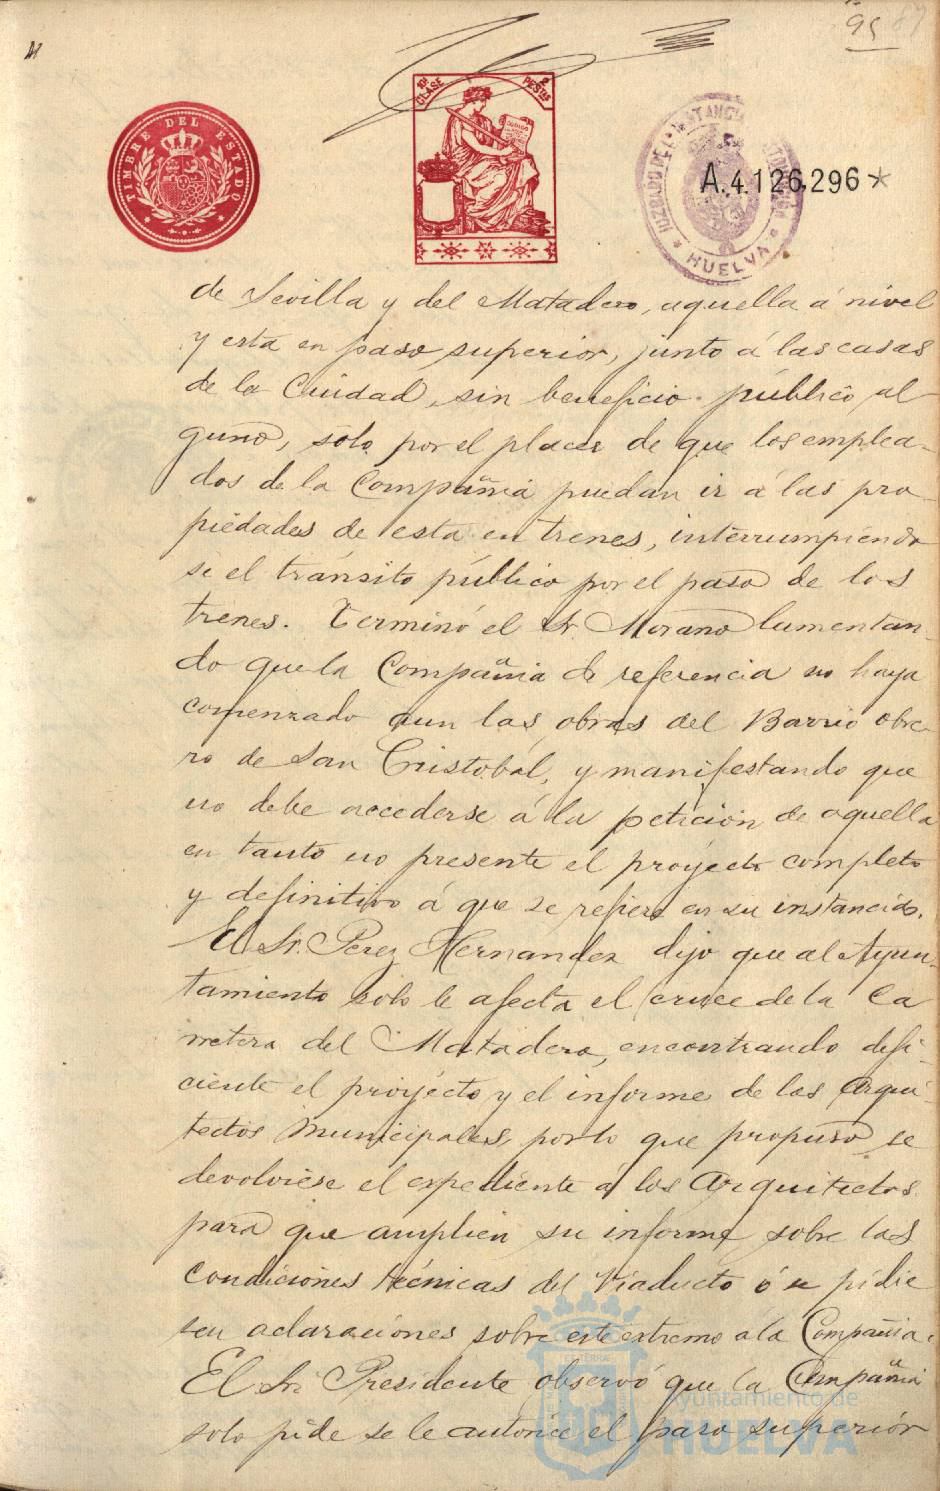 95 87
TIMBRE DEL ESTADO
10ª CLASE
2 PESTAS
CODIGO
HUELVA
A.4.126,296*
de Sevilla y del Matadero, aquella á nivel
y esta en paso superior, junto á las casas
de la Ciudad, sin beneficio público al
guno, solo por el placer de que los emplea-
dos de la Compañia puedan ir á las pro-
piedades de esta en trenes, interrumpiendo
se el tránsito público por el paso de los
trenes. Terminó el Sr. Morano lamentan-
do que la Compañia de referencia no haya
comenzado aun las obras del Barrio obre-
ro de San Cristobal, y manifestando que
no debe accederse á la petición de aquella
en tanto no presente el proyecto completo
y definitivo á que se refiere en su instancia.
El Sr. Perez Hernandez dijo que al Ayun-
tamiento solo le afecta el cruce de la Ca
rretera del Matadero, encontrando defi-
ciente el proyecto y el informe de los Arqui-
tectos Municipales, por lo que propuso se
devolviese el expediente á los Arquitectos
para que amplien su informe sobre las
condiciones técnicas del Viaducto ó se pidie
sen aclaraciones sobre este extremo á la Compañia.
El Sr. Presidente observó que la Compañia
solo pide se le autorice el paso superior
Ayuntamiento de
HUELVA